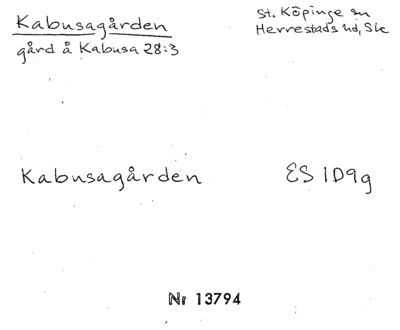 Kabusagården
gård å Kabusa 28:3
St. Köpinge sn
Herrestads hd, Sk
Kabusagården
ES 1D9g
Nr 13794